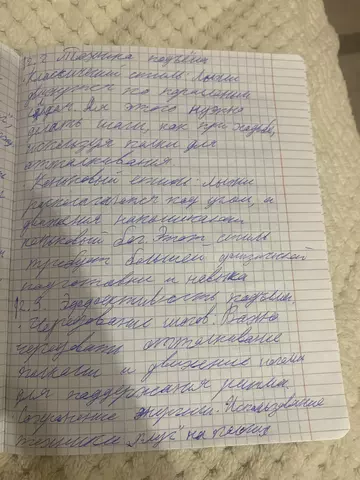 12.2 Техника подъёма
Классический стиль: лыжи
движутся по параллельным
Для этого нужно
делать шаги, как при ходьбе,
используя палки для
отталкивания
Коньковый стиль: лыжи
располагаются под углом, и
движения напоминают
коньковый бег. Этот стиль
требует большей физической
подготовки и навыка
12.3. Эффективность подъёма.
Чередование шагов. Важно
чередовать отталкивание
и движение ногами
для поддержания ритма.
Сохранение энергии. Использование
техники „плуг" на